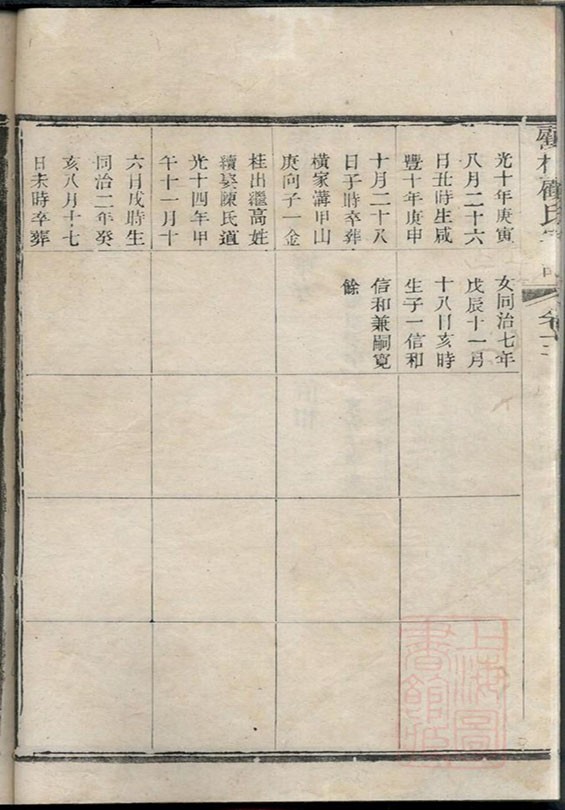 光十年庚寅
八月二十六
日丑時生咸
豐十年庚申
十月二十八
日子時卒葬
橫家溝甲山
庚向子一金
桂出繼高姓
續娶陳氏道
光十四年甲
午十一月十
六日戌時生
同治二年癸
亥八月十七
日未時卒葬
女同治七年
戊辰十一月
十八日亥時
生子一信和
信和兼嗣寬
餘
上海圖
書館藏